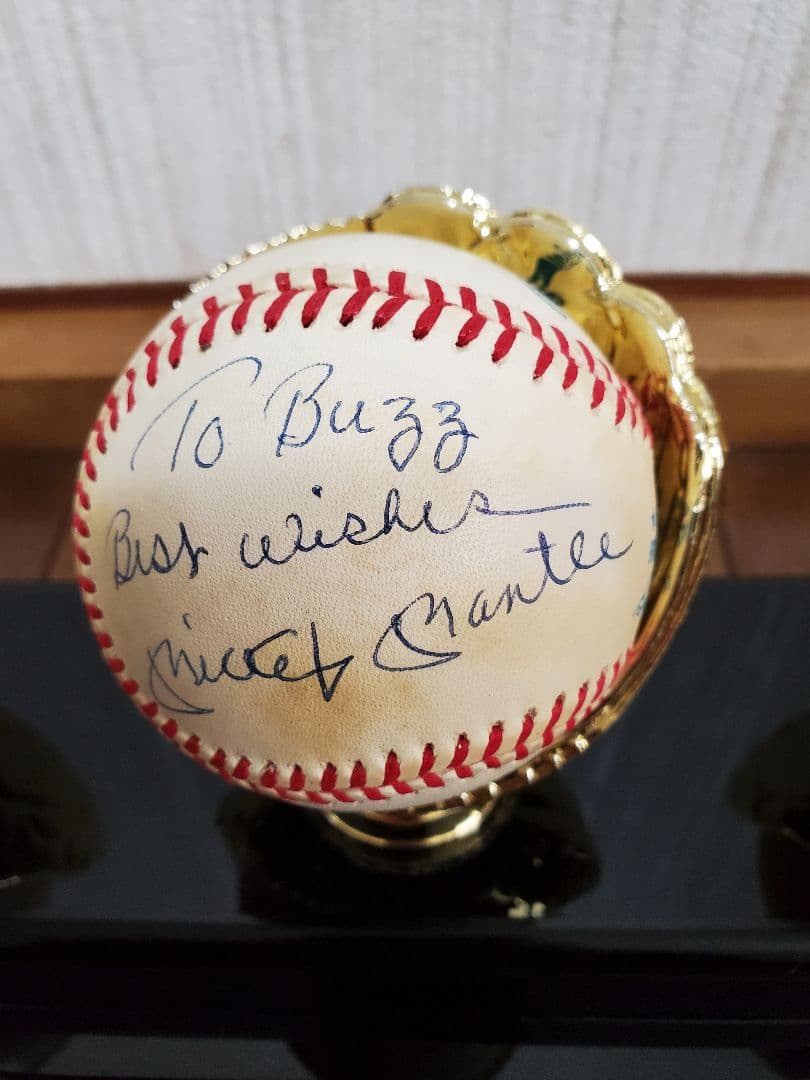 To Buzz
Best wishes
Mickey Mantle